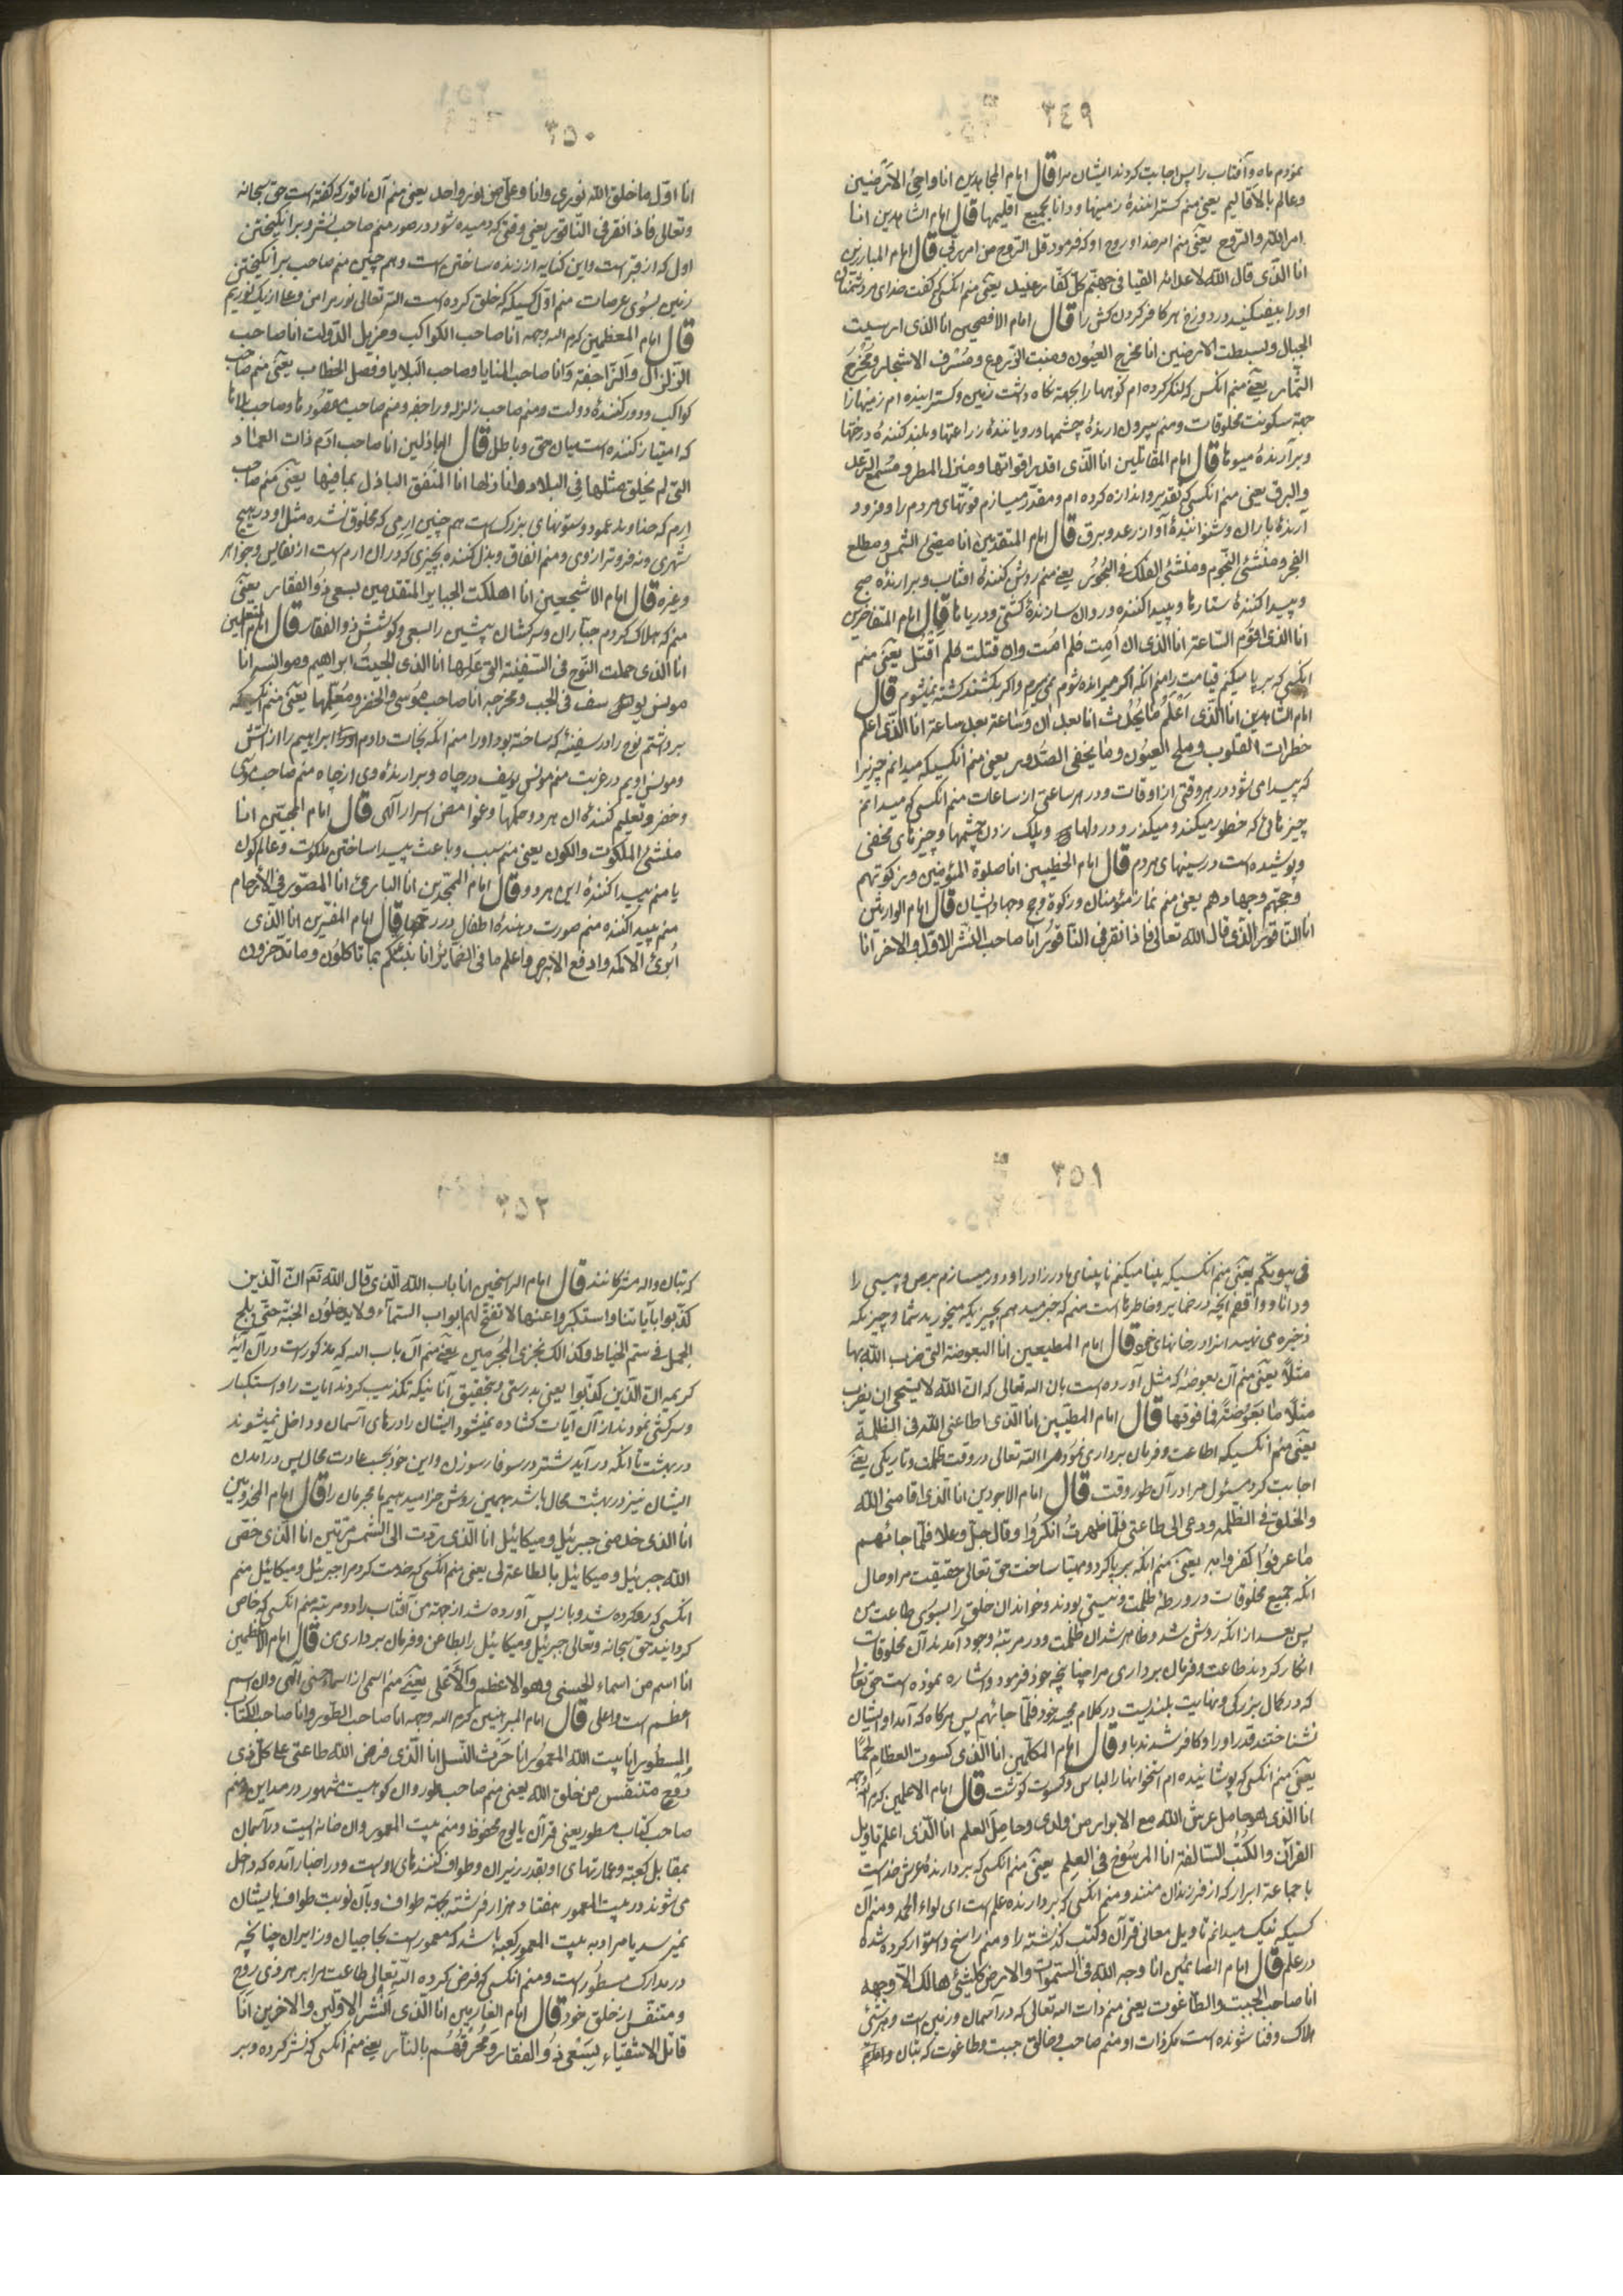 ٣٤٩
نمودم ماه و آفتاب را پس اجابت کردند ایشان مرا قال امام المجاهدین انا داحی الارضین
وعالم بالاقالیم یعنی منم کسترانندهٔ زمینها و دانا بجمیع اقلیمها قال امام الشاهدین انا
امر الله والروح یعنی منم امر خدا و روح او که فرمود قل الروح من امر ربی قال امام المبارزین
انا الذی قال الله لاعدائه القیا فی جهنم کل کفار عنید یعنی منم انکسی که کفت خدای مر دشمنان
اورا بیفکنید در دوزخ هر کافر کردن کش را قال امام الافصحین انا الذی ارسیت
الجبال وبسطت الارضین انا مخرج العیون ومنبت الزروع ومشرف الاشجار ومخرج
الثمار یعنی منم انکس که لنکر کرده ام کوهها را بجهة نکاه داشت زمین و کسترانیده ام زمینها را
جهة سکونت مخلوقات و منم بیرون ارندهٔ چشمها و رویانندهٔ زراعتها و بلند کنندهٔ درختها
و برآرندهٔ میوها قال امام المقاتلین انا الذی اقدر اقواتها ومنزل المطر ومسمع الرعد
والبرق یعنی منم انکسی که تقدیر و اندازه کرده ام و مقدر میسازم قوتهای مردم را و فرود
آرندهٔ باران و شنوانندهٔ آواز رعد و برق قال امام المتقدمین انا مضیئ الشمس ومطلع
الفجر ومنشئ النجوم ومنشئ الفلک فی البحور یعنی منم روشن کنندهٔ افتاب و برارندهٔ صبح
و پیدا کنندهٔ ستارها و پیدا کننده و روان سازندهٔ کشتی در دریاها قال امام المتفاخرین
انا الذی اقوم الساعة انا الذی ان امت فلم امت وان قتلت فلم اقتل یعنی منم
انکسی که بر پا میکنم قیامت را منم انکه اکر میرانده شوم نمی میرم و اکر بکشند کشته نمیشوم قال
امام الشاهدین انا الذی اعلم ما یحدث انا بعد ان وساعة بعد ساعة انا الذی اعلم
خطرات القلوب ولمح العیون وما یخفی الصدور یعنی منم انکسیکه میدانم چیزیرا
که پیدا می شود در هر وقتی از اوقات و در هر ساعتی از ساعات منم انکسی که میدانم
چیزهائی که خطور میکند و میکذرد در دلها و پلک زدن چشمها و چیزهای مخفی
و پوشیده است در سینهای مردم قال امام الخطیبین انا صلوة المؤمنین وزکوتهم
وحجتهم وجهادهم یعنی منم نماز مؤمنان و زکوة و حج و جهاد ایشان قال امام الوارثین
انا الناقور الذی قال الله تعالی فاذا نقر فی الناقور انا صاحب النشر الاول والاخر انا
٣٥٠
انا اول ما خلق الله نوری وانا وعلی من نور واحد یعنی منم آن ناقور که کفته است حق سبحانه
وتعالی فاذا نقر فی الناقور یعنی وقتی که دمیده شود در صور منم صاحب نشر و برانکیختن
اول که از قبر است و این کنایه از زنده ساختن است و هم چنین منم صاحب برانکیختن
زمین بسوی عرصات منم اول کسیکه که خلق کرده است الله تعالی نور مرا من و علی از یک نوریم
قال امام المعظمین کرم الله وجهه انا صاحب الکواکب ومزیل الدولت انا صاحب
الزلزال والراجفة وانا صاحب المنایا وصاحب البلایا وفصل الخطاب یعنی منم صاحب
کواکب و دور کنندهٔ دولت و منم صاحب زلزله و راجفه و منم صاحب مقصودها و صاحب بلاها
که امتیاز کننده است میان حق و باطل قال امام الباذلین انا صاحب ارم ذات العماد
التی لم یخلق مثلها فی البلاد وانا نازلها انا المنفق الباذل بما فیها یعنی منم صاحب
ارم که خداوند عمود و ستونهای بزرک است هم چنین ارمی که مخلوق نشده مثل او در هیچ
شهری و منم فرود آرنده وی و منم انفاق و بذل کننده بچیزی که در ان ارم است از نفایس و جواهر
وغیره قال امام الاشجعین انا اهلکت الجبابر المتقدمین بسعی ذوالفقار یعنی
منم که هلاک کردم جباران و سرکشان پیشین را بسعی و کوشش ذوالفقار قال امام المتعلمین
انا الذی حملت النوح فی السفینة التی عملها انا الذی انجیت ابراهیم ومونسه انا
مونس یوسف فی الجب ومخرجه انا صاحب موسی والخضر ومعلمها یعنی منم انکسیکه
برداشتم نوح را در سفینهٔ که ساخته بود او را منم انکه نجات دادم ابراهیم را از آتش
و مونس اویم در غربت منم مونس یوسف در چاه و برارندهٔ وی از چاه منم صاحب موسی
و خضر و تعلیم کنندهٔ ان هر دو حکمها و غوامض اسرار آلهی قال امام المجیبین انا
منشئ الملکوت والکون یعنی منم سبب و باعث پیدا ساختن ملکوت و عالم کون
یا منم پیدا کنندهٔ این هر دو قال امام الممجدین انا البارئ انا المصور فی الارحام
منم پیدا کننده منم صورت دهندهٔ اطفال در رحمها قال امام المفسرین انا الذی
ابرئ الاکمه وادفع الابرص واعلم ما فی الضمایر انا ننبئکم بما تاکلون وما تدخرون
٣٥١
فی بیوتکم یعنی منم انکسیکه بینا میکنم نابینای مادرزاد را و دور میسازم برص و پیسی را
و دانا و واقفم انچه در ضمایر و خاطرها است منم که خبر میدهم بچیزیکه میخورید شما و چیزیکه
ذخیره می نهید انرا در خانهای خود قال امام المطیعین انا البعوضة التی ضرب الله بها
مثلا یعنی منم آن بعوضه که مثل آورده است بان الله تعالی که ان الله لا یستحی ان یضرب
مثلا ما بعوضة فما فوقها قال امام المطیبین انا الذی اطاعنی الله فی الظلمة
یعنی منم انکسیکه اطاعت و فرمان برداری نمود مرا الله تعالی در وقت ظلمت و تاریکی یعنی
اجابت کرد مسئول مرا در آن طور وقت قال امام الاجودین انا الذی اقامنی الله
والخلق فی الظلمه ودعی الی طاعتی فلما ظهرت انکروا وقال جل وعلا فلما جائهم
ما عرفوا کفروا به یعنی منم انکه بر پا کرد و مهیا ساخت حق تعالی حقیقت مرا و حال
انکه جمیع مخلوقات در ورطهٔ ظلمت و نیستی بودند و خواند ان خلق را بسوی طاعت من
پس بعد از انکه روشن شد و ظاهر شد ان ظلمت و در مرتبهٔ وجود آمدند آن مخلوقات
انکار کردند طاعت و فرمان برداری مرا چنانچه خود فرمود و اشاره نموده است حق تعالی
که در کمال بزرکی و نهایت بلندیست در کلام مجید خود فلما جائهم پس هرکاه که آمد او ایشان
نشناختند قدر او را و کافر شدند باو قال امام المکلمین انا الذی کسوت العظام لحما
یعنی منم انکسی که پوشانیده ام استخوانها را لباس و کسوت کوشت قال امام الاعلمین کرم الله وجهه
انا الذی هو حامل عرش الله مع الابرار من ولدی وحامل العلم انا الذی اعلم تاویل
القرآن والکتب السالفة انا المرسوخ فی العلم یعنی منم انکسی که بردارندهٔ عرش خداست
با جماعة ابرار که از فرزندان منند و منم انکسی که بردارنده علم است ای لواء الحمد و منم آن
کسیکه نیک میدانم تاویل معانی قرآن و کتب کذشته را و منم راسخ و استوار کرده شده
در علم قال امام الصائمین انا وجه الله فی السموات والارض کل شیئ هالک الا وجهه
انا صاحب الجبت والطاغوت یعنی منم ذات الله تعالی که در آسمان و زمین است و هر شئی
هلاک و فنا شونده است مکر ذات او منم صاحب و خالق جبت و طاغوت که بتان
٣٥٢
که بتان واله مشرکانند قال امام الراسخین انا باب الله الذی قال الله تعم ان الذین
کذبوا بآیاتنا واستکبروا عنها لا تفتح لهم ابواب السمآء ولا یدخلون الجنة حتی یلج
الجمل فی سم الخیاط وکذالک نجزی المجرمین یعنی منم آن باب الله که مذکور است در آن آیهٔ
کریمه ان الذین کذبوا یعنی بدرستی و بتحقیق آنانیکه تکذیب کردند آیات را و استکبار
و سرکشی نمودند از آن ایات کشاده نمیشود ایشان را درهای آسمان و داخل نمیشوند
در بهشت تا انکه در آید شتر در سوفار سوزن و این خود بحسب عادت محال پس درآمدن
ایشان نیز در بهشت محال باشد بهمین روش جزا میدهیم ما مجرمان را قال امام المخدومین
انا الذی خدمنی جبرئیل ومیکائیل انا الذی ردت الی الشمس مرتین انا الذی خص
الله جبرئیل ومیکائیل بالطاعة لی یعنی منم انکسی که خدمت کرد مرا جبرئیل و میکائیل منم
انکسی که رد کرده شد و باز پس آورده شد از جهة من آفتاب را دو مرتبه منم انکسی که خاص
کردانید حق سبحانه وتعالی جبرئیل و میکائیل را بطاعت و فرمان برداری من قال امام الاعظمین
انا اسم من اسماء الحسنی وهو الاعظم والاعلی یعنی منم اسمی از اسماء حسنی آلهی و ان اسم
اعظم است و اعلی قال امام المبرهنین کرم الله وجهه انا صاحب الطور وانا صاحب الکتاب
المسطور انا بیت الله المعمور انا حرث النسل انا الذی فرض الله طاعتی علی کل ذی
روح متنفس من خلق الله یعنی منم صاحب طور و ان کوهیست مشهور در مداین و منم
صاحب کتاب مسطور یعنی قرآن یا لوح محفوظ و منم بیت المعمور و ان خانه ایست در آسمان
بمقابل کعبه و عمارتهای او بقدر زیران و طواف کنندهای اوست و در اخبار آمده که داخل
می شوند در بیت المعمور هفتاد هزار فرشته بجهة طواف و بآن نوبت طواف بایشان
نمیرسد یا مراد به بیت المعمور کعبه باشد که معمور است بحاجیان و زایران چنانچه
در مدارک مسطور است و منم انکسی که فرض کرده الله تعالی طاعت مرا بر هر ذی روح
و متنفس از خلق خود قال امام الغازیین انا الذی انشر الاولین والاخرین انا
قاتل الاشقیاء بسعی ذوالفقار ومحرقهم بالنار یعنی منم انکسی که نشر کرده و بر